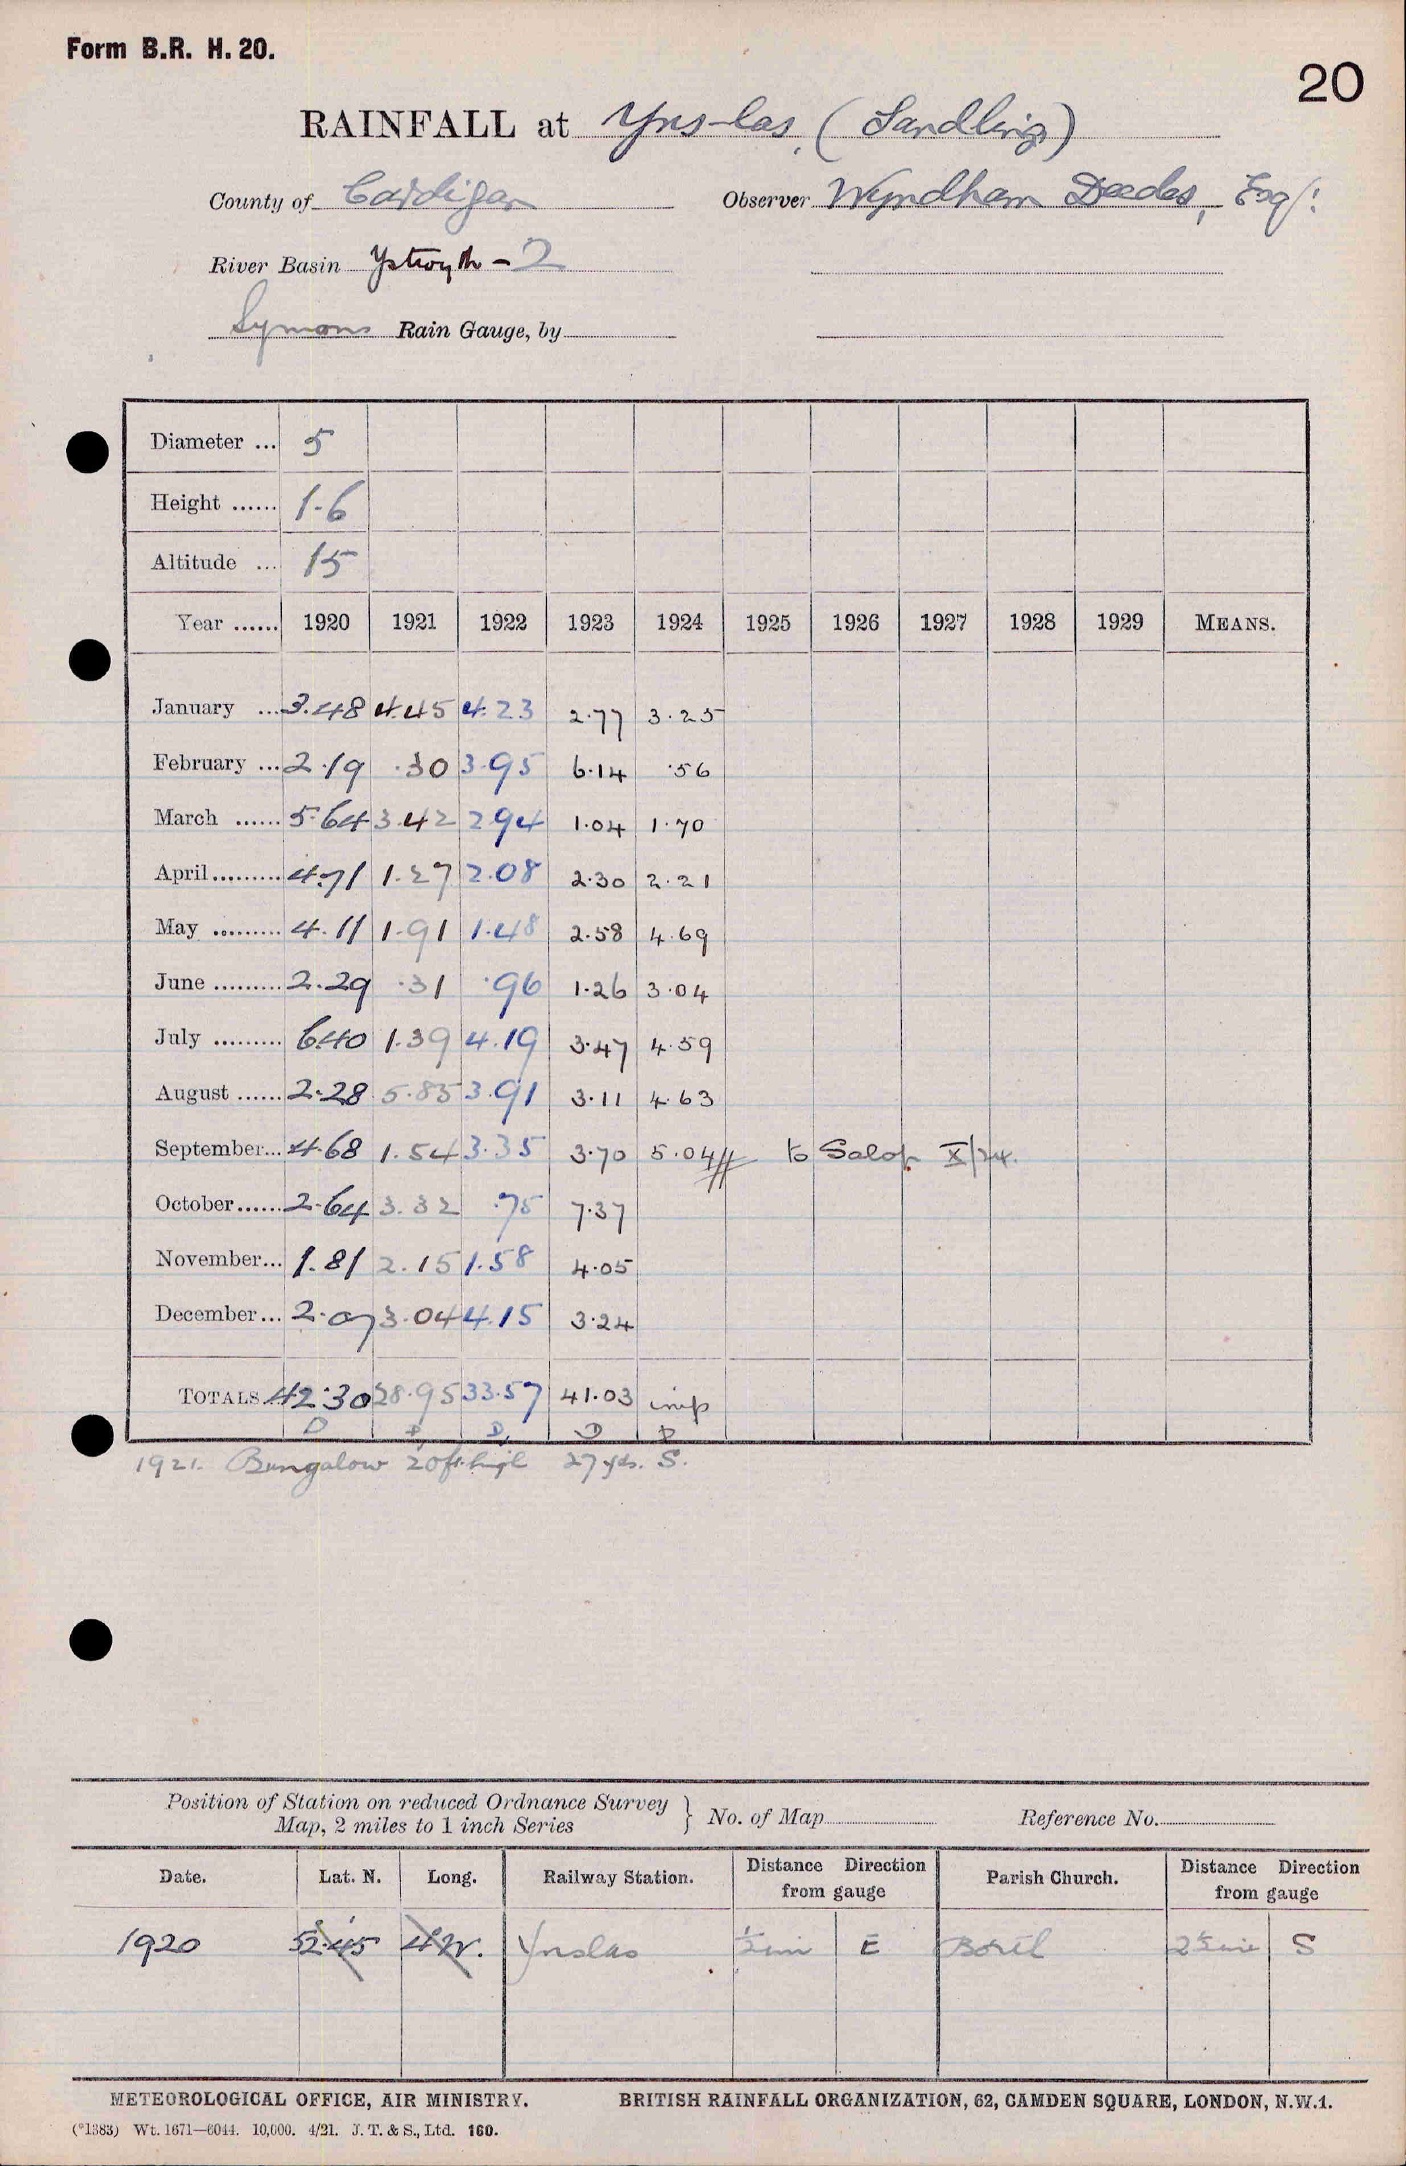 Form B.R. H. 20.
20
RAINFALL at Yns-las, (Sandling)
County of Cardigan Observer Wyndham Deedes, Esq:
River Basin Ystwyth - 2
Symons Rain Gauge, by
Diameter ... 5
Height ...... 1-6
Altitude ... 15
Year ...... 1920 1921 1922 1923 1924 1925 1926 1927 1928 1929 MEANS.
January ... 3.48 4.45 4.23 2.77 3.25
February ... 2.19 .30 3.95 6.14 .56
March ...... 5.64 3.42 2.94 1.04 1.70
April ......... 4.71 1.27 2.08 2.30 2.21
May ......... 4.11 1.91 1.48 2.58 4.69
June ......... 2.29 .31 .96 1.26 3.04
July ......... 6.40 1.39 4.19 3.47 4.59
August ...... 2.28 5.85 3.91 3.11 4.63
September... 4.68 1.54 3.35 3.70 5.04 to Salop X/24.
October...... 2.64 3.32 .75 7.37
November... 1.81 2.15 1.58 4.05
December... 2.07 3.04 4.15 3.24
TOTALS 42.30 28.95 33.57 41.03 imp
D D D D D
1921. Bungalow 20ft high 27 yds. S.
Position of Station on reduced Ordnance Survey
Map, 2 miles to 1 inch Series } No. of Map Reference No.
Date. Lat. N. Long. Railway Station. Distance Direction from gauge Parish Church. Distance Direction from gauge
1920 52°45' 4°W. Ynslas ½ mi E Borth 2½ mi S
METEOROLOGICAL OFFICE, AIR MINISTRY. BRITISH RAINFALL ORGANIZATION, 62, CAMDEN SQUARE, LONDON, N.W.1.
(°1383) Wt. 1671—6044. 10,000. 4/21. J. T. & S., Ltd. 160.